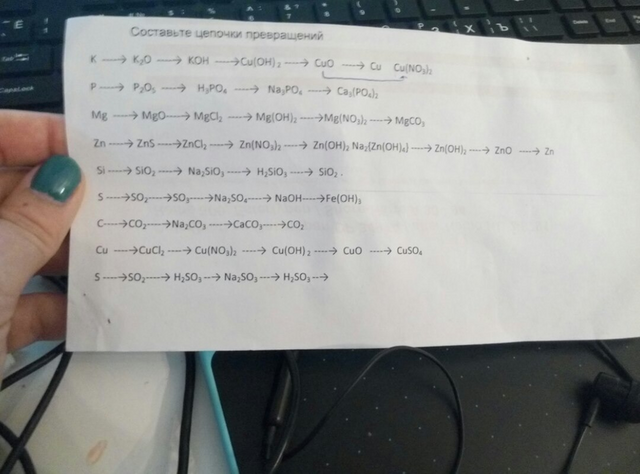 Составьте цепочки превращений
K ----→ K₂O ----→ KOH ----→Cu(OH)₂ ----→ CuO ----→ Cu Cu(NO₃)₂
P----→ P₂O₅ ----→ H₃PO₄ ----→ Na₃PO₄ ----→ Ca₃(PO₄)₂
Mg ----→ MgO----→ MgCl₂ ----→ Mg(OH)₂ ----→Mg(NO₃)₂----→ MgCO₃
Zn ----→ ZnS ----→ZnCl₂ ----→ Zn(NO₃)₂ ----→ Zn(OH)₂ Na₂[Zn(OH)₄] ----→Zn(OH)₂ ----→ ZnO ----→ Zn
Si ----→ SiO₂ ----→ Na₂SiO₃ ----→ H₂SiO₃ ----→ SiO₂ .
S ----→SO₂----→SO₃----→Na₂SO₄----→ NaOH----→Fe(OH)₃
C----→CO₂----→Na₂CO₃ ----→CaCO₃----→CO₂
Cu ----→CuCl₂ ----→ Cu(NO₃)₂ ----→ Cu(OH)₂ ----→ CuO ----→ CuSO₄
S ----→SO₂----→ H₂SO₃ ---→ Na₂SO₃ ----→ H₂SO₃ ---→